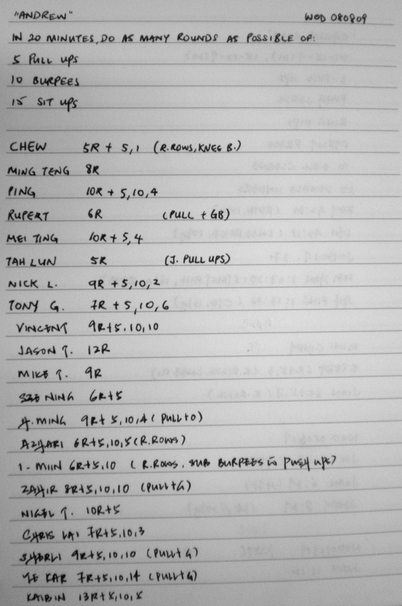 "ANDREW" WOD 080809
IN 20 MINUTES, DO AS MANY ROUNDS AS POSSIBLE OF:
5 PULL UPS
10 BURPEES
15 SIT UPS
CHEW 5R + 5,1 (R.ROWS, KNEE B.)
MING TENG 8R
PING 10R + 5,10,4
RUPERT 6R (PULL + GB)
MEI TING 10R + 5,4
TAH LUN 5R (J. PULL UPS)
NICK L. 9R + 5,10,2
TONY G. 7R + 5,10,6
VINCENT 9R + 5,10,10
JASON T. 12R
MIKE T. 9R
SZE NING 6R+5
MING 9R + 5,10,4 (PULL+O)
AZHARI 6R+5,10,5 (R.ROWS)
I-MIIN 6R+5,10 (R.ROWS, SUB BURPEES to PUSH UPS)
ZAHIR 8R+5,10,10 (PULL+G)
NIGEL T. 10R+5
CHRIS LAI 7R+5,10,3
SHERLI 9R+5,10,10 (PULL+G)
YE KAR 7R+5,10,14 (PULL+G)
KAIBIN 13R+5,10,5